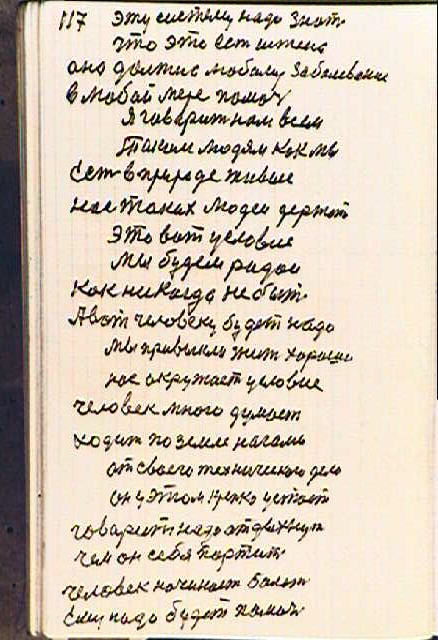 117 Эту систему надо знат
что это ест истена
оно должно любому заболевание
в любой мере помоч
Я говарит нам всем
Таким людям как мы
Ест в природе живое
нас таких людей держат
это вот условие
мы будем радои
как никогда не быт
А вот человеку будет надо
Мы привыкли жит хорошо
нас окружает условие
человек много думает
ходит по земле нагами
от своего техническаго дела
он у этом крепко устает
говарит надо отдыхнут
чем он себя портит
человек начинает болет
Ему надо будет помоч